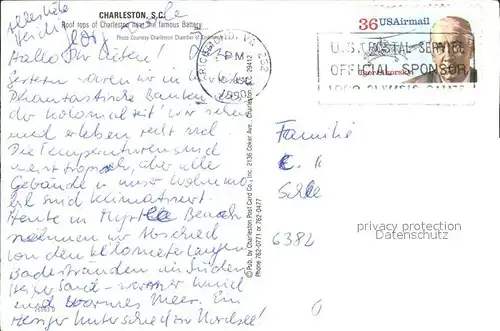 CHARLESTON, S.C.
Roof tops of Charleston near the famous Battery
Photo Courtesy Charleston Chamber of Commerce
Hallo Ihr Lieben!
Gestern waren wir in
Phantastische Bauten aus
der Kolonialzeit! Wir sehen
und erleben recht viel.
Die Temperaturen sind
meist tropisch, aber alle
Gebäude u. unser Wohnmo-
bil sind klimatisiert.
Heute in Myrtle Beach
nehmen wir Abschied
von den kilometerlangen
Badestränden im Süden
heißer Sand - warmer Wind
und warmes Meer. Ein
riesiger Unterschied zur Nordsee!
© Pub. by Charleston Post Card Co., Inc. 2136 Coker Ave., Charleston, S.C. 29412
Phone 762-0771 or 762-0477
RICHMOND, VA 232
PM
1990
36 USAirmail
Igor Sikorsky
U.S. POSTAL SERVICE
OFFICIAL SPONSOR
Familie
6382
privacy protection